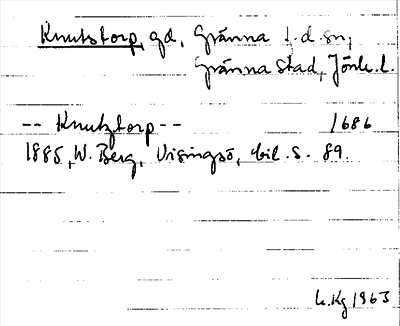 Knutstorp, gd, Gränna f.d. sn,
Gränna stad, Jönk. l.
-- Knutztorp -- 1686
1885, W. Berg, Visingsö, bil. s. 89.
h. Kg 1963